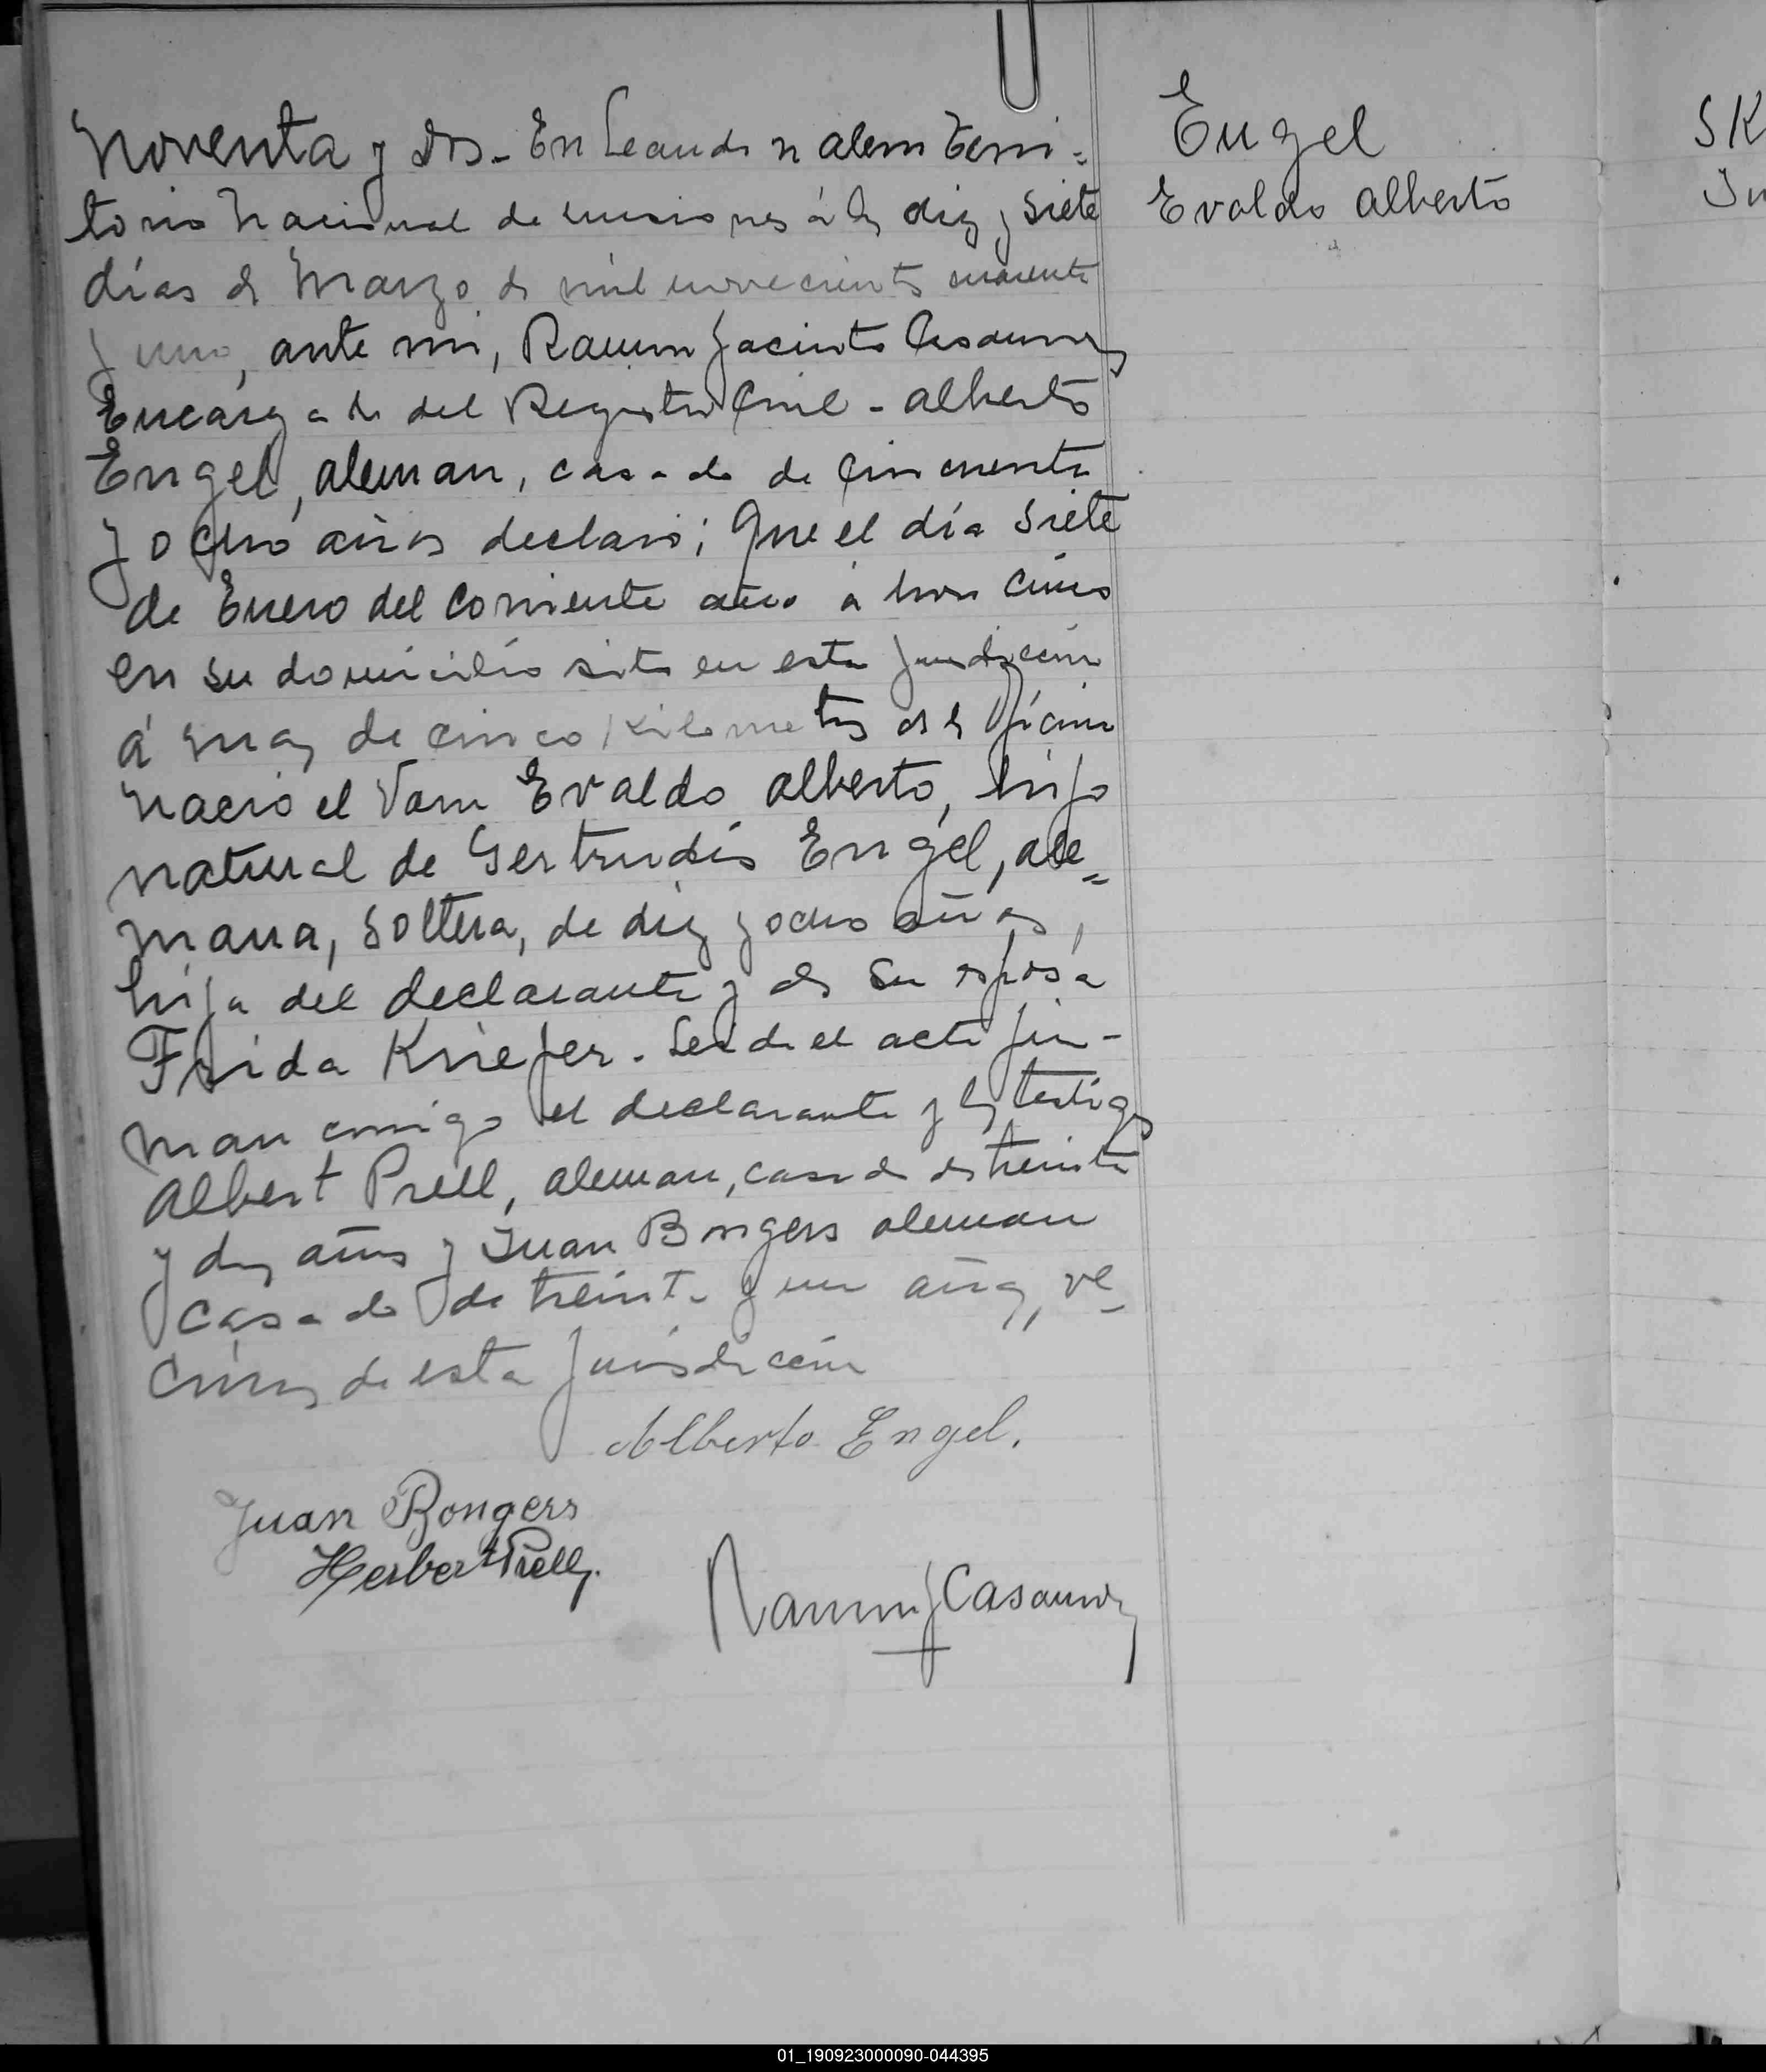 Noventa y dos - En Leandro N Alem Terri=
torio Nacional de Misiones á los diez y siete
días de Marzo de mil novecientos cuarenta
y uno, ante mi, Ramon Jacinto
Encargado del Registro Civil - Alberto
Engel, aleman, casado de cincuenta
y ocho años declaro; Que el día siete
de Enero del corriente año á hora cinco
en su domicilio sito en esta jurisdiccion
á mas de cinco kilometros de la Oficina
nacio el varon Evaldo Alberto, hijo
natural de Gertrudis Engel, ale=
mana, soltera, de diez y ocho años,
hija del declarante y de su esposa
Frida Kriefer. Leida el acta fir-
man conmigo el declarante y los testigos
Albert Prell, aleman, casado de treinta
y dos años y Juan Bongers aleman
casado de treinta y un años, ve-
cinos de esta jurisdiccion
Alberto Engel.
Juan Bongers
Herbert Prell.
Ramon J
Engel
Evaldo Alberto
SK
01_190923000090-044395